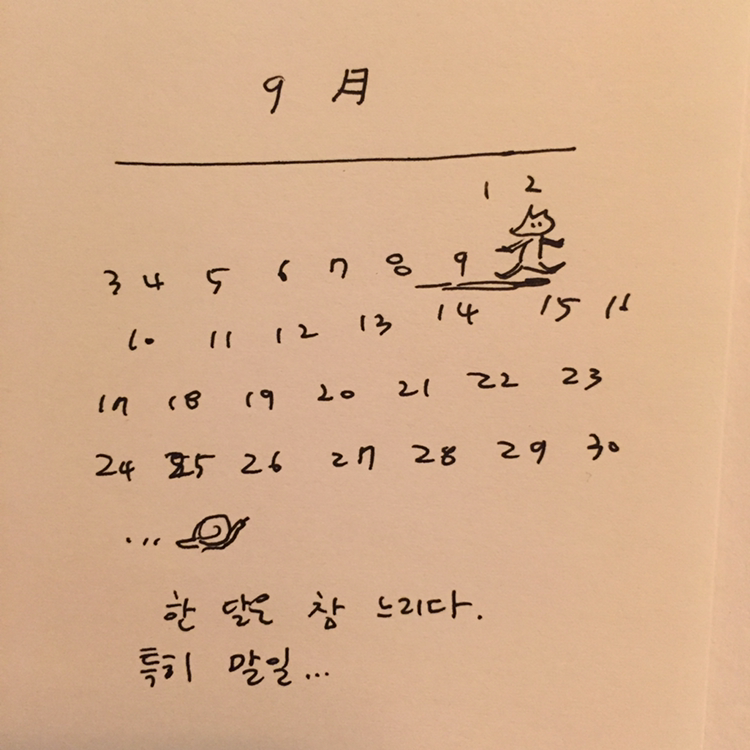 9 月
1 2
3 4 5 6 7 8 9
10 11 12 13 14 15 16
17 18 19 20 21 22 23
24 25 26 27 28 29 30
...
한 달은 참 느리다.
특히 말일...